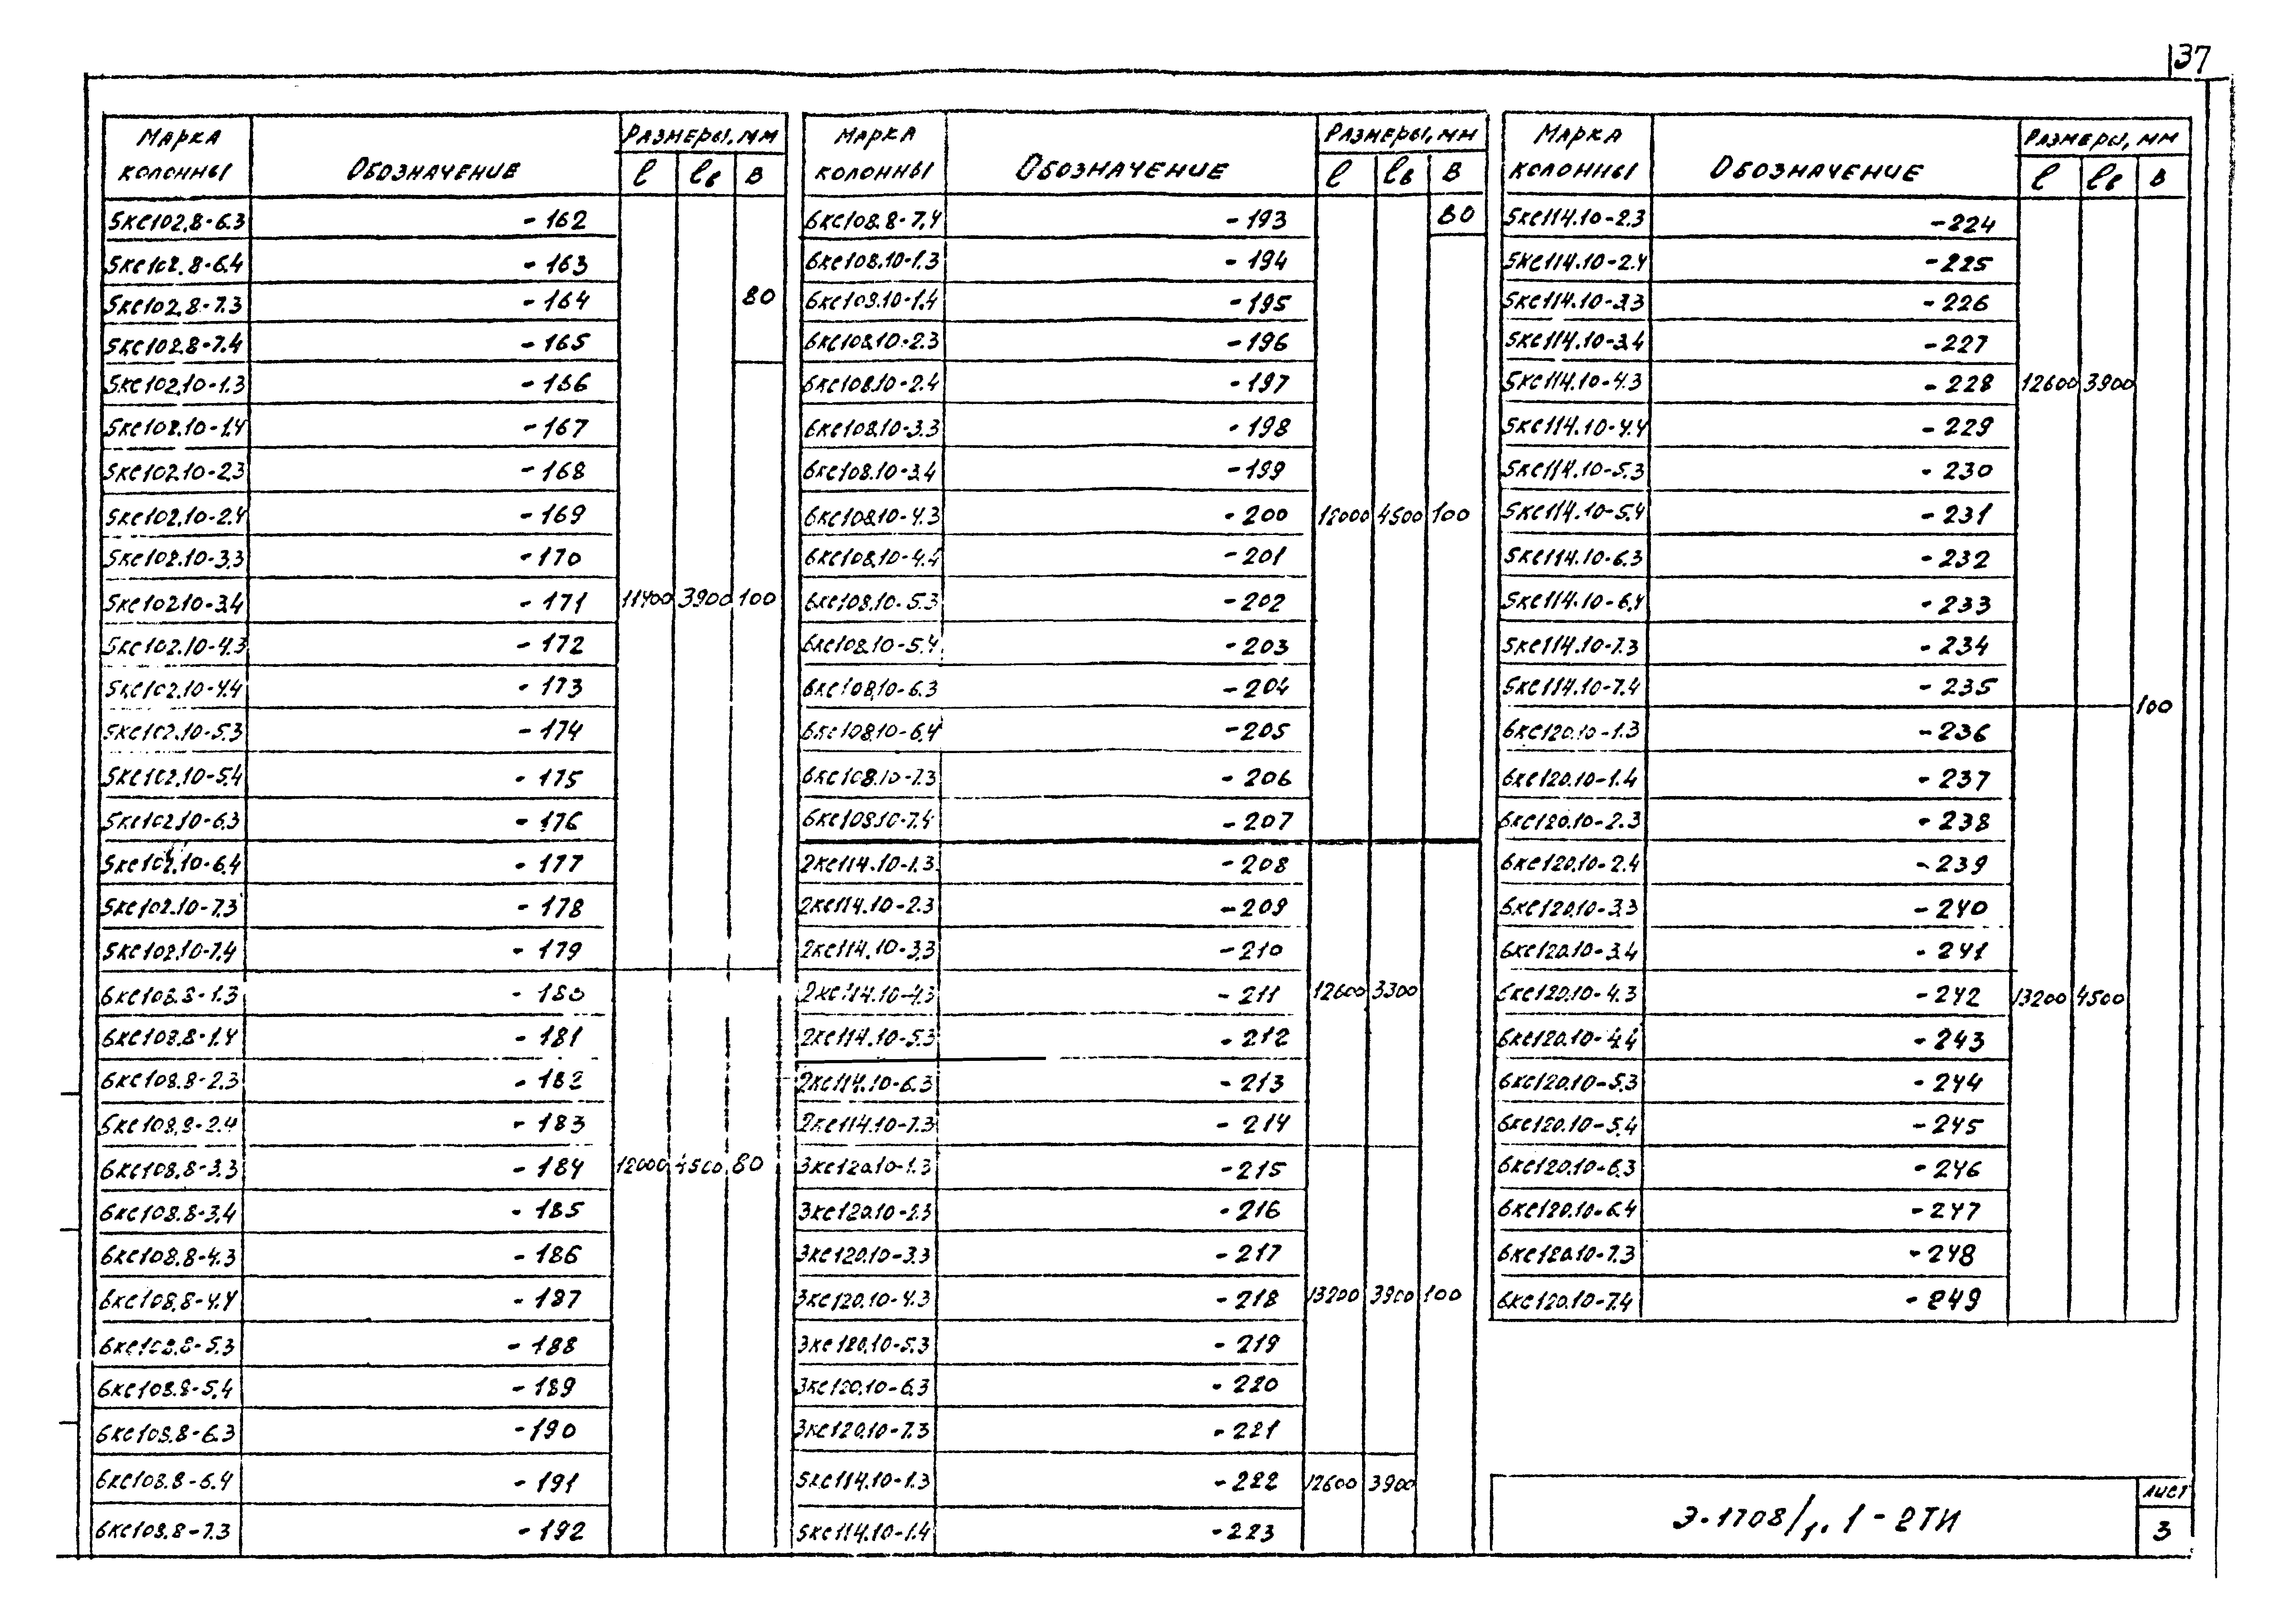 137
Марка колонны Обозначение Размеры, мм
l lв В
5КС102.8-6.3 -162
5КС102.8-6.4 -163
5КС102.8-7.3 -164 80
5КС102.8-7.4 -165
5КС102.10-1.3 -166
5КС102.10-1.4 -167
5КС102.10-2.3 -168
5КС102.10-2.4 -169
5КС102.10-3.3 -170
5КС102.10-3.4 -171 11400 3900 100
5КС102.10-4.3 -172
5КС102.10-4.4 -173
5КС102.10-5.3 -174
5КС102.10-5.4 -175
5КС102.10-6.3 -176
5КС102.10-6.4 -177
5КС102.10-7.3 -178
5КС102.10-7.4 -179
6КС108.8-1.3 -180
6КС108.8-1.4 -181
6КС108.8-2.3 -182
6КС108.8-2.4 -183
6КС108.8-3.3 -184 12000 4500 80
6КС108.8-3.4 -185
6КС108.8-4.3 -186
6КС108.8-4.4 -187
6КС108.8-5.3 -188
6КС108.8-5.4 -189
6КС108.8-6.3 -190
6КС108.8-6.4 -191
6КС108.8-7.3 -192
Марка колонны Обозначение Размеры, мм
l lв В
6КС108.8-7.4 -193 80
6КС108.10-1.3 -194
6КС108.10-1.4 -195
6КС108.10-2.3 -196
6КС108.10-2.4 -197
6КС108.10-3.3 -198
6КС108.10-3.4 -199
6КС108.10-4.3 -200 12000 4500 100
6КС108.10-4.4 -201
6КС108.10-5.3 -202
6КС108.10-5.4 -203
6КС108.10-6.3 -204
6КС108.10-6.4 -205
6КС108.10-7.3 -206
6КС108.10-7.4 -207
2КС114.10-1.3 -208
2КС114.10-2.3 -209
2КС114.10-3.3 -210
2КС114.10-4.3 -211 12600 3300
2КС114.10-5.3 -212
2КС114.10-6.3 -213
2КС114.10-7.3 -214
3КС120.10-1.3 -215
3КС120.10-2.3 -216
3КС120.10-3.3 -217
3КС120.10-4.3 -218 13200 3900 100
3КС120.10-5.3 -219
3КС120.10-6.3 -220
3КС120.10-7.3 -221
5КС114.10-1.3 -222 12600 3900
5КС114.10-1.4 -223
Марка колонны Обозначение Размеры, мм
l lв В
5КС114.10-2.3 -224
5КС114.10-2.4 -225
5КС114.10-3.3 -226
5КС114.10-3.4 -227
5КС114.10-4.3 -228 12600 3900
5КС114.10-4.4 -229
5КС114.10-5.3 -230
5КС114.10-5.4 -231
5КС114.10-6.3 -232
5КС114.10-6.4 -233
5КС114.10-7.3 -234
5КС114.10-7.4 -235
100
6КС120.10-1.3 -236
6КС120.10-1.4 -237
6КС120.10-2.3 -238
6КС120.10-2.4 -239
6КС120.10-3.3 -240
6КС120.10-3.4 -241
6КС120.10-4.3 -242 13200 4500
6КС120.10-4.4 -243
6КС120.10-5.3 -244
6КС120.10-5.4 -245
6КС120.10-6.3 -246
6КС120.10-6.4 -247
6КС120.10-7.3 -248
6КС120.10-7.4 -249
Э-1708/1.1-2ТИ
Лист
3